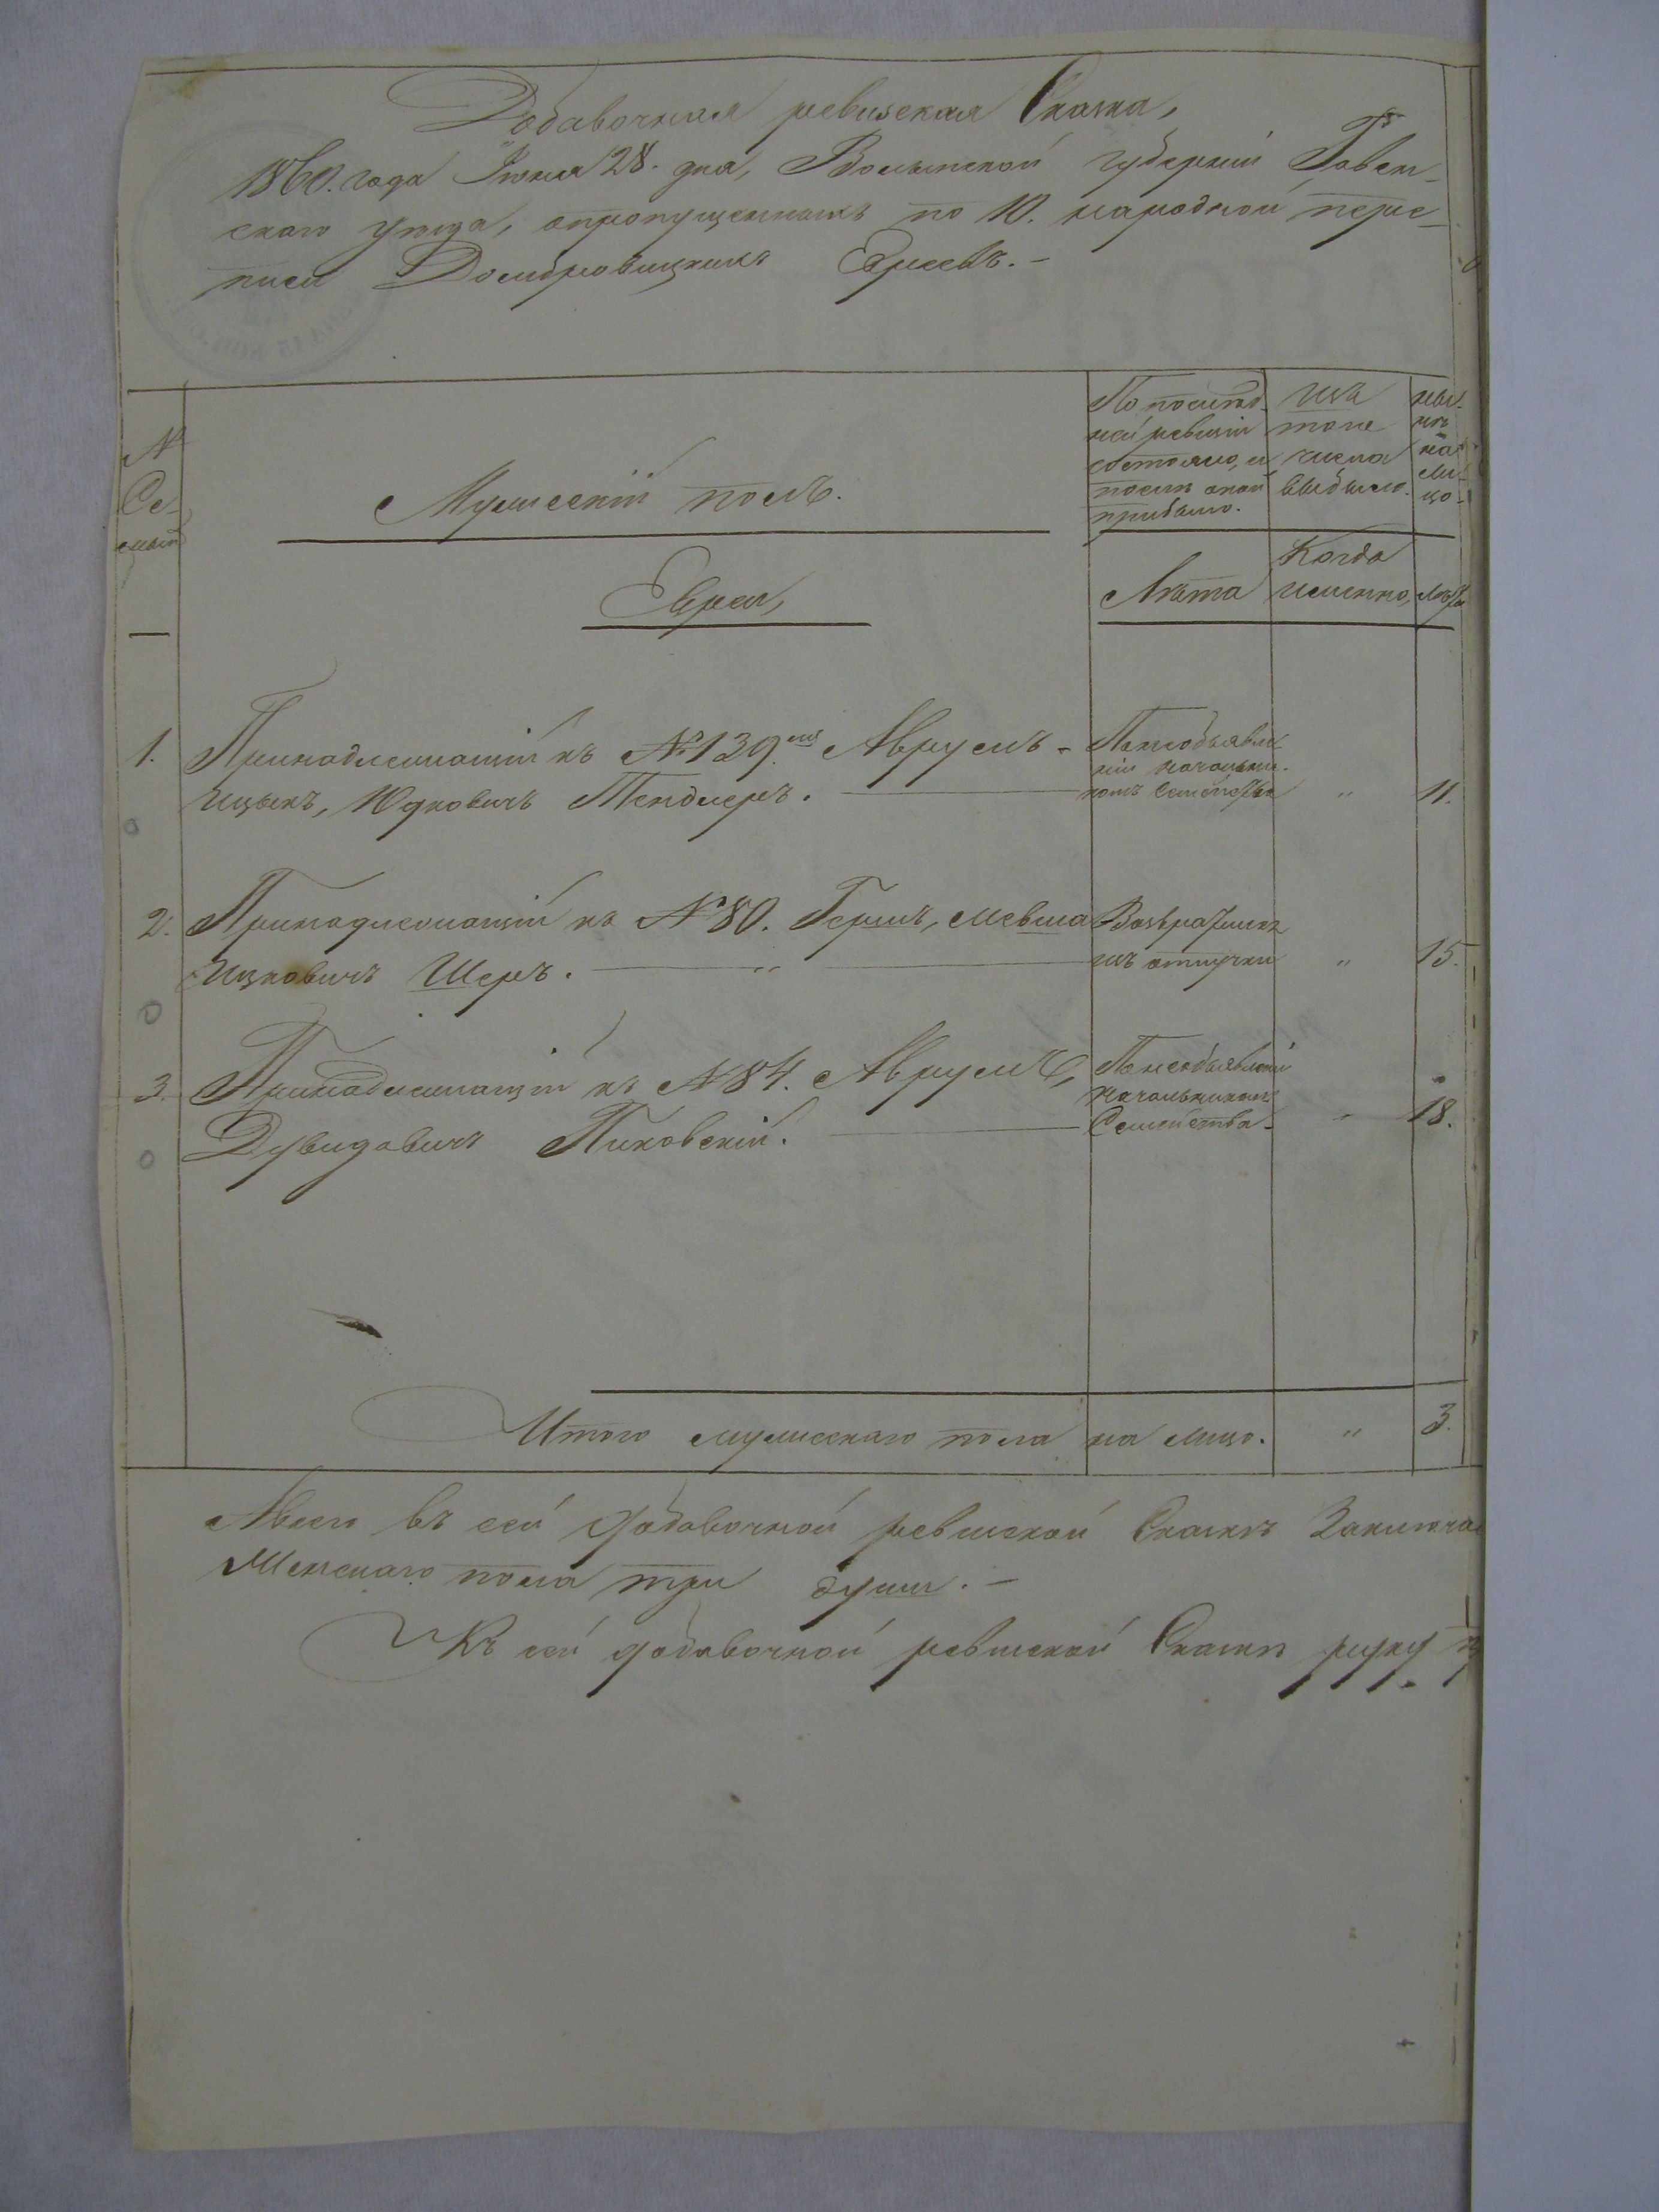 Добавочная ревизская Сказка,
1860. года Июня 28. дня, Волынской губерніи Ровен-
скаго уѣзда, опропущенныхъ по 10. народной пере-
писи Домбровицкихъ Евреевъ.-
№
Се-
мьи
Мужескій полъ.
По послѣд-
ней ревизіи
состояло, и
послѣ оной
прибыло.
изъ
того
числа
выбыло.
ны-
нѣ
на
ли-
цо-
Евреи,
Лѣта
Когда
именно,
Лѣта
1. Принадлежащій къ № 139.му Аврумъ-
Ицыкъ, Юдковичъ Тендлеръ.
По необъявле-
нію начальни-
комъ Семейства " 11.
2. Принадлежащій къ № 80. Гершъ, Мевша
Ицковичъ Шеръ. "
Возвратился
изъ отлучки " 15.
3. Принадлежащій къ № 84. Аврумъ,
Дувидовичъ Пиковскій.
По необъявленію
начальникомъ
Семейства- " 18.
Итого мужескаго пола на лицо. " 3.
А всего въ сей добавочной ревизской Сказкѣ Заключае
Мужескаго пола три души.-
Къ сей добавочной ревизской Сказкѣ руку